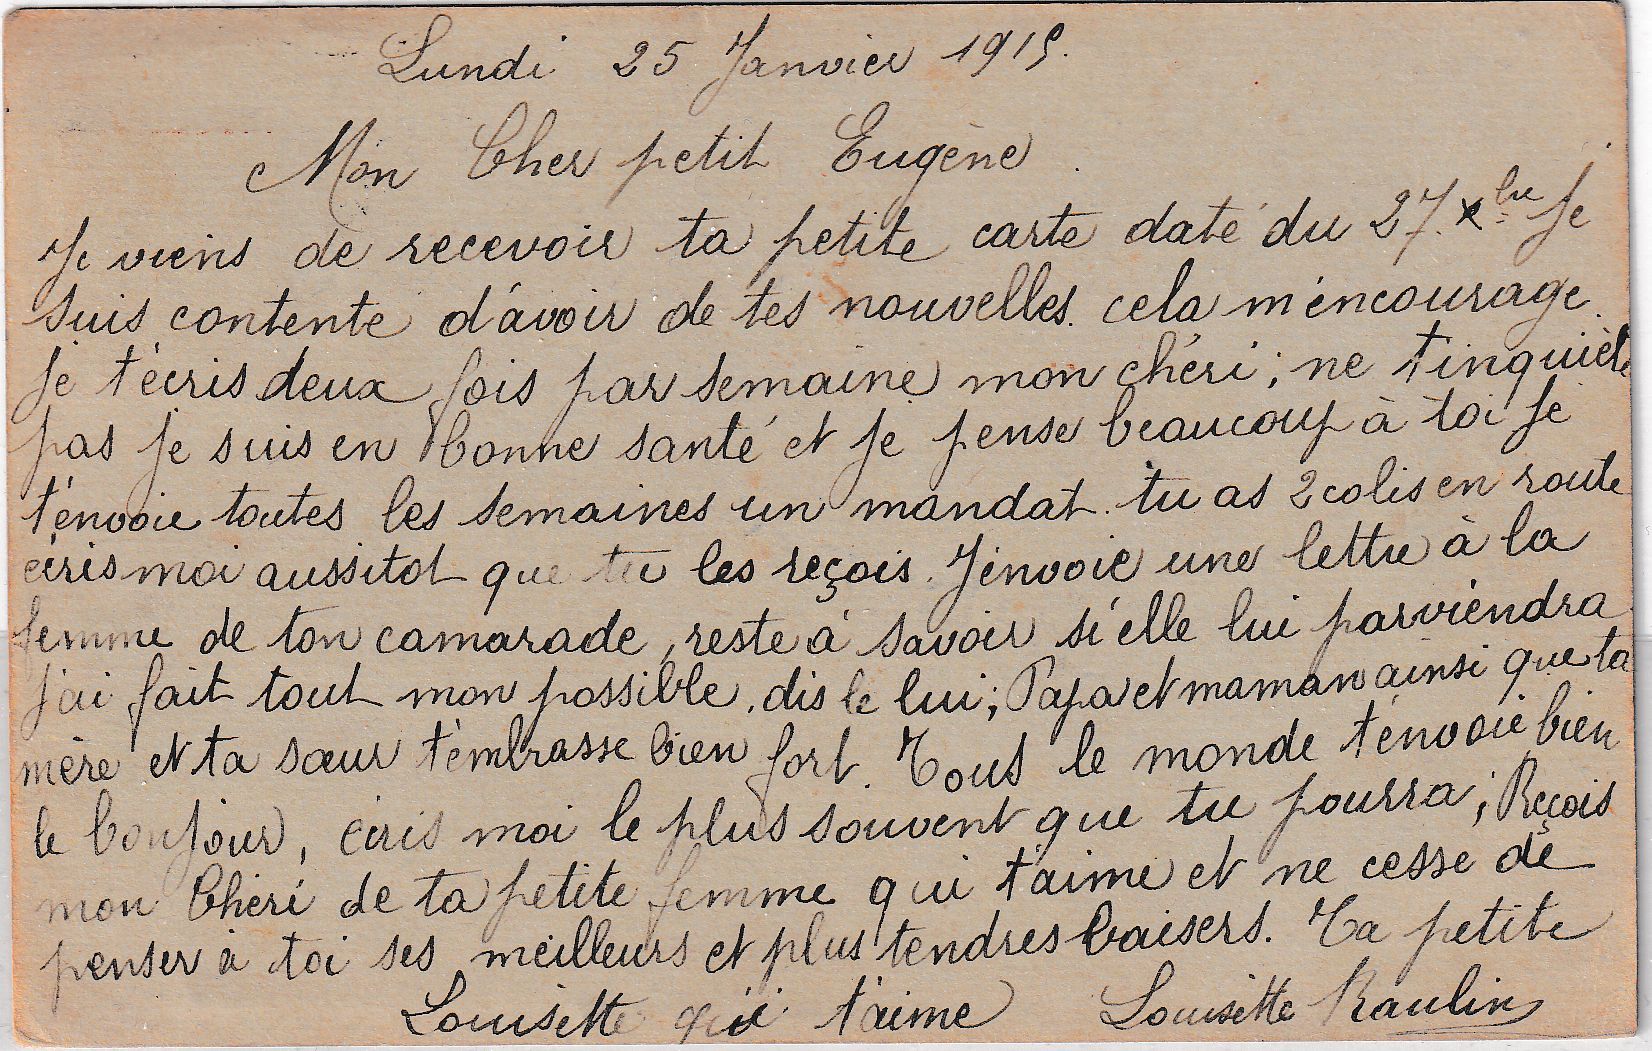 Lundi 25 Janvier 1915.
Mon Cher petit Eugène.
Je viens de recevoir ta petite carte daté du 27. xbre je
suis contente d'avoir de tes nouvelles. cela m'encourage.
Je t'écris deux fois par semaine mon chéri; ne t'inquiète
pas je suis en bonne santé et je pense beaucoup à toi je
t'envoie toutes les semaines un mandat. tu as 2 colis en route
écris moi aussitot que tu les reçois. J'envoie une lettre à la
femme de ton camarade, reste à savoir si elle lui parviendra
j'ai fait tout mon possible, dis le lui; Papa et maman ainsi que ta
mère et ta sœur t'embrasse bien fort. Tous le monde t'envoie bien
le bonjour, écris moi le plus souvent que tu pourra; Reçois
mon Chéri de ta petite femme qui t'aime et ne cesse de
penser à toi ses meilleurs et plus tendres baisers. Ta petite
Louisette qui t'aime Louisette Raulin